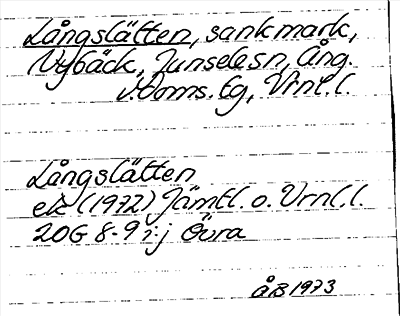 Långslätten, sankmark,
Nybäck, Junselesn, Ång.
v.Doms. lg, Vrnl.l.
Långslätten
ek (1972) Jämtl. o. Vrnl.l.
20G 8-9 i-j Övra
ÅB 1973